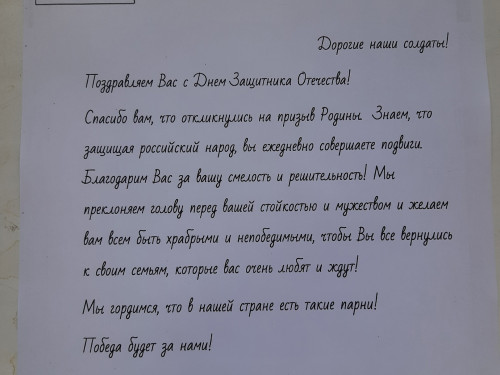 Дорогие наши солдаты!
Поздравляем Вас с Днем Защитника Отечества!
Спасибо вам, что откликнулись на призыв Родины. Знаем, что
защищая российский народ, вы ежедневно совершаете подвиги.
Благодарим Вас за вашу смелость и решительность! Мы
преклоняем голову перед вашей стойкостью и мужеством и желаем
вам всем быть храбрыми и непобедимыми, чтобы Вы все вернулись
к своим семьям, которые вас очень любят и ждут!
Мы гордимся, что в нашей стране есть такие парни!
Победа будет за нами!